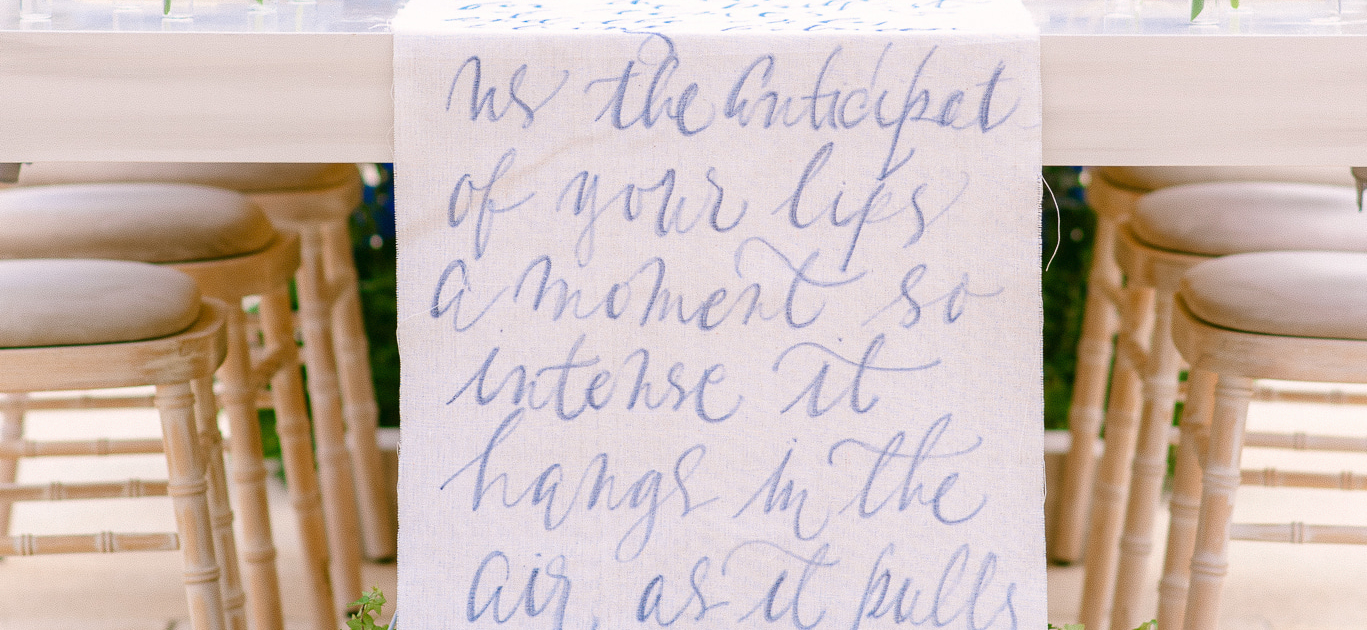 us the anticipat
of your lips
a moment so
intense it
hangs in the
air, as it pulls